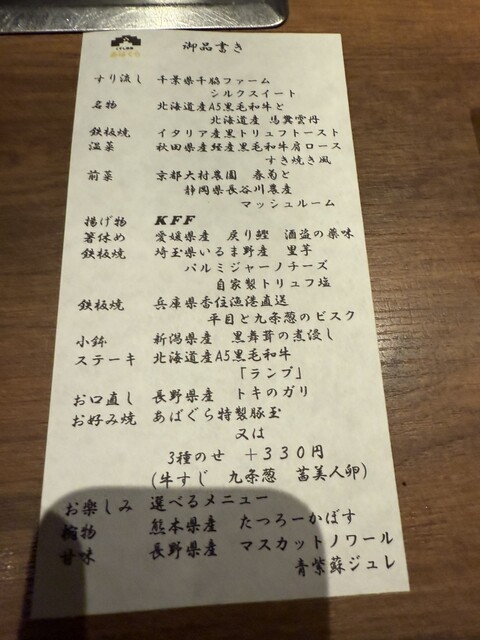 御品書き
すり流し 千葉県千脇ファーム
シルクスイート
名物 北海道産A5黒毛和牛と
北海道産 馬糞雲丹
鉄板焼 イタリア産黒トリュフトースト
温菜 秋田県産経産黒毛和牛肩ロース
すき焼き風
前菜 京都大村農園 春菊と
静岡県長谷川農産
マッシュルーム
揚げ物 KFF
箸休め 愛媛県産 戻り鰹 酒盗の薬味
鉄板焼 埼玉県いるま野産 里芋
パルミジャーノチーズ
自家製トリュフ塩
鉄板焼 兵庫県香住漁港直送
平目と九条葱のビスク
小鉢 新潟県産 黒舞茸の煮浸し
ステーキ 北海道産A5黒毛和牛
「ランプ」
お口直し 長野県産 トキのガリ
お好み焼 あばぐら特製豚玉
又は
3種のせ +330円
(牛すじ 九条葱 茜美人卵)
お楽しみ 選べるメニュー
輪物 熊本県産 たつろーかぼす
甘味 長野県産 マスカットノワール
青紫蘇ジュレ